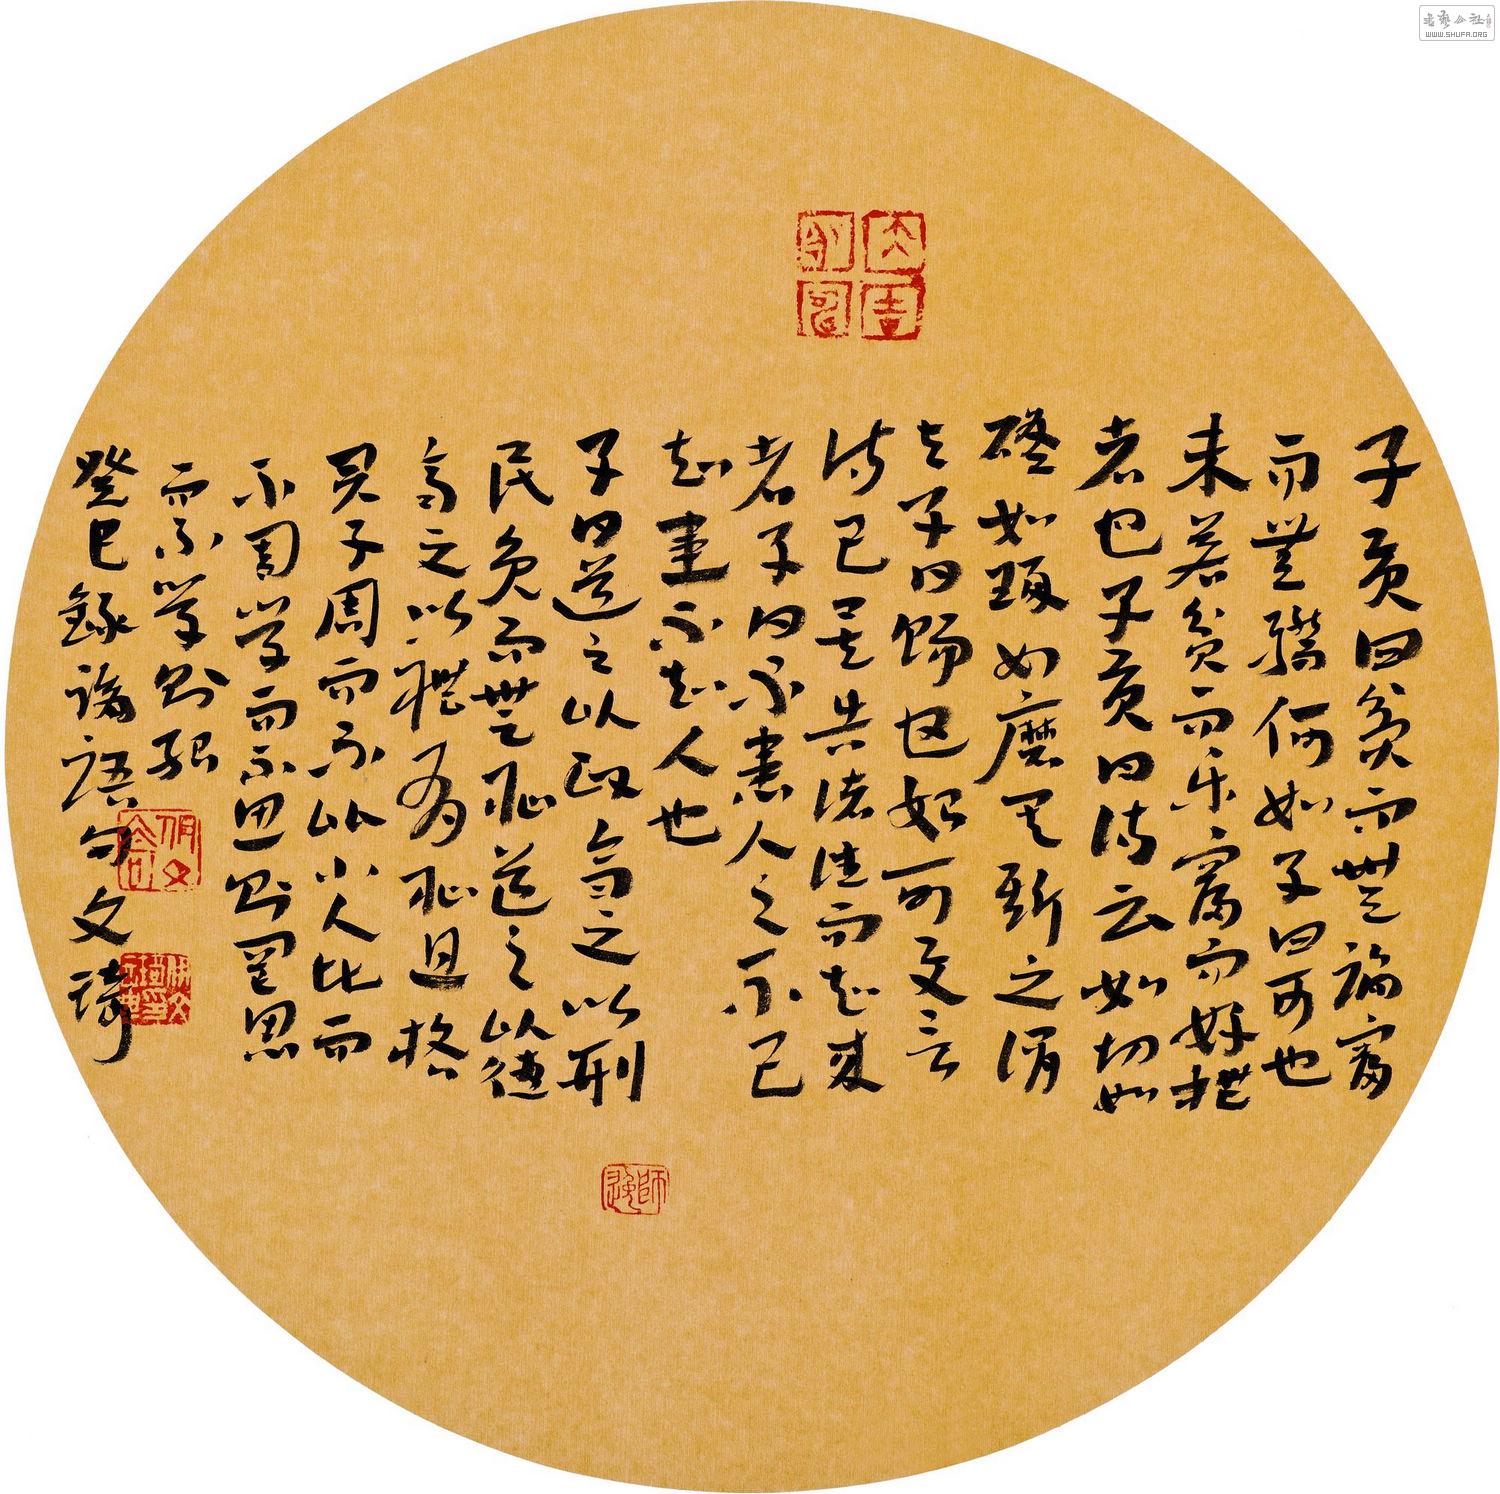 子貢曰貧而無諂富
而無驕何如子曰可也
未若貧而乐富而好禮
者也子貢曰诗云如切如
磋如琢如磨其斯之谓
与子曰賜也始可与言
诗已矣告诸往而知来
者子曰不患人之不己
知患不知人也
子曰道之以政齊之以刑
民免而無恥道之以德
齊之以禮有恥且格
君子周而不比小人比而
不周学而不思則罔思
而不学則殆
癸巳錄論語句文琦
WWW.SHUFA.ORG